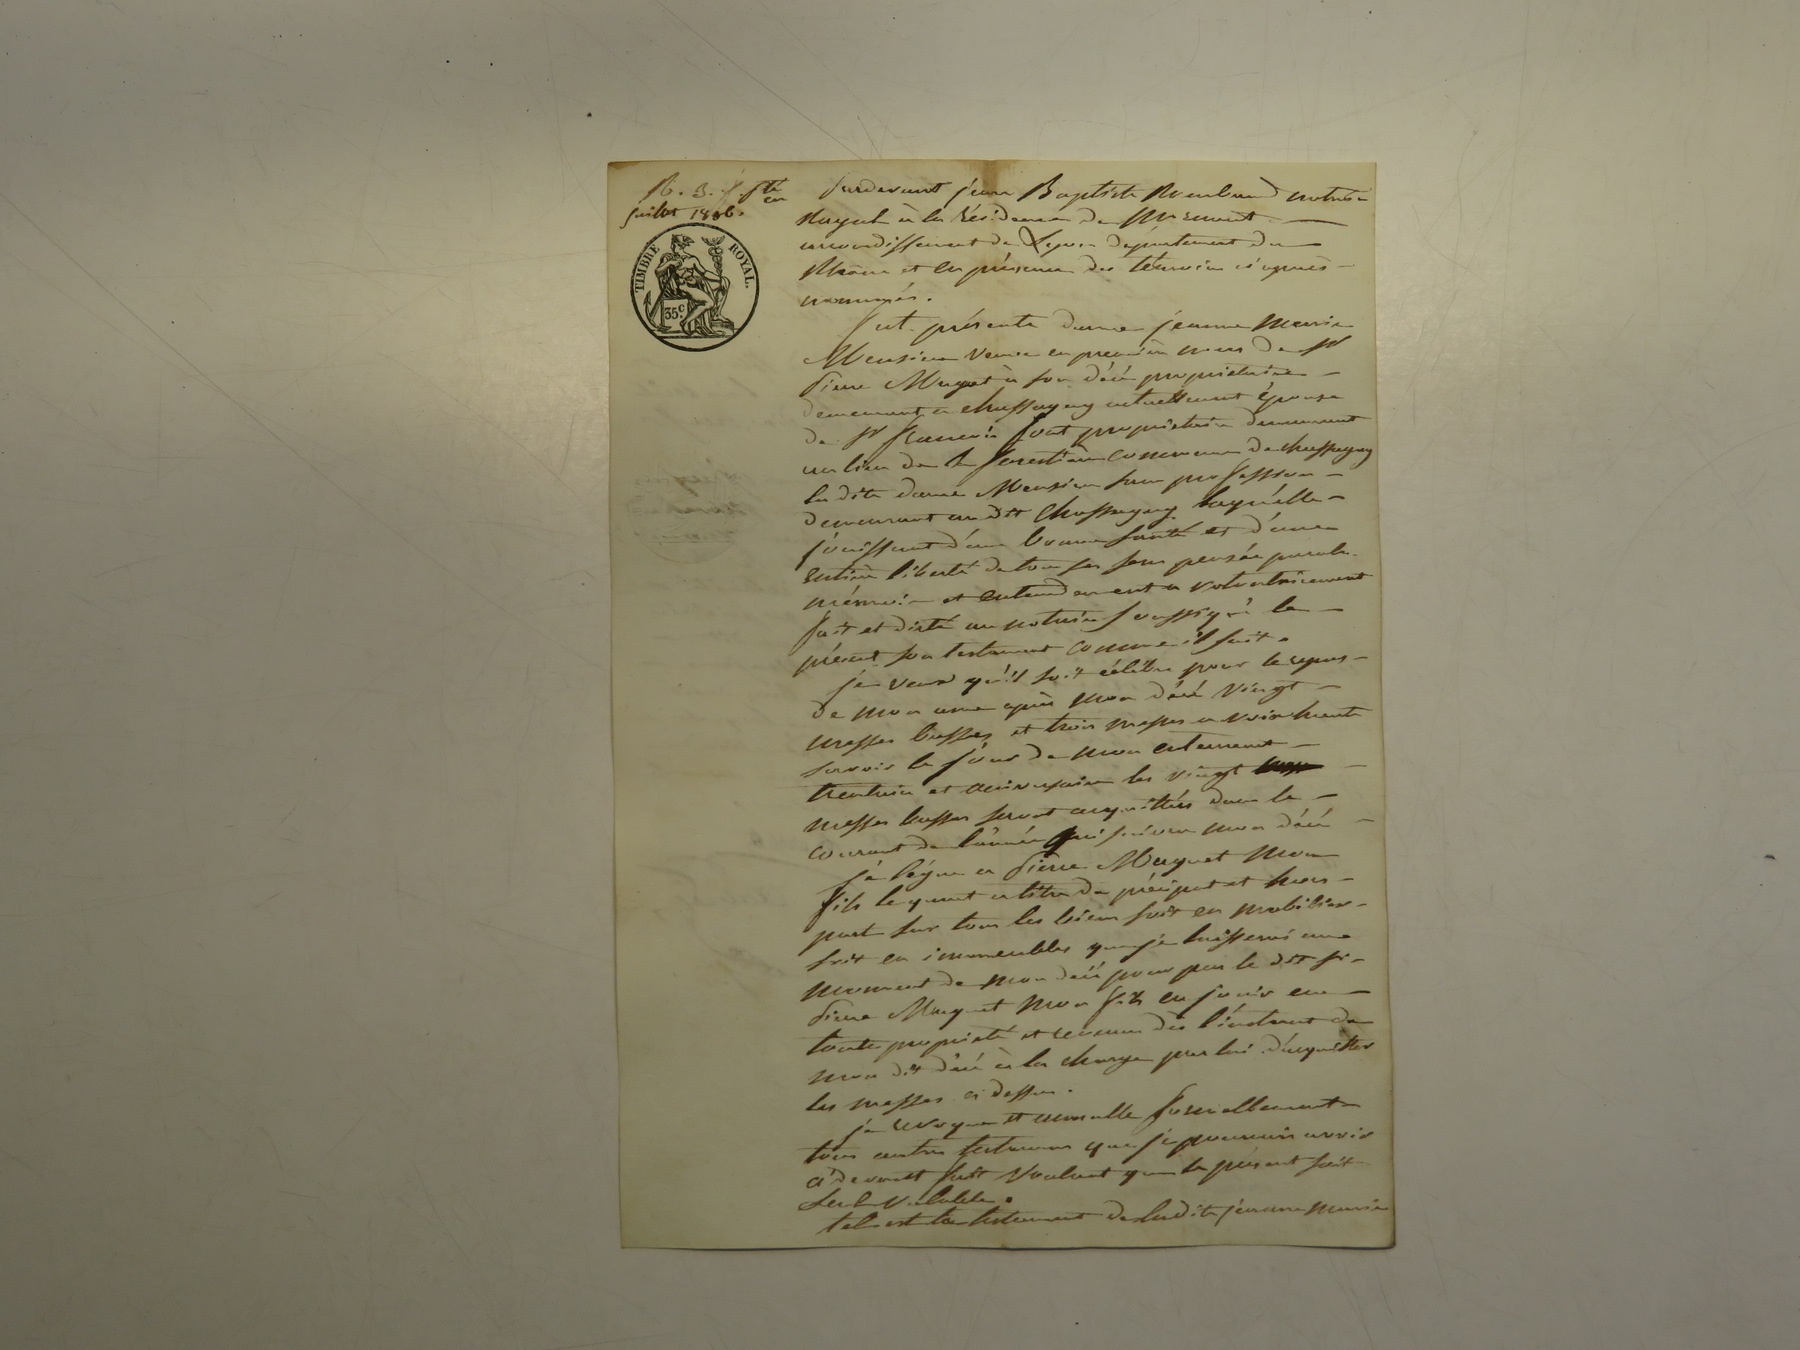 juillet 18
TIMBRE ROYAL.
35c.
Pardevant jean Baptiste notaire
Royal à la résidence de
arrondissement de Lyon département du
Rhône et en présence des témoins ci après
nommés.
fut présente dame jeanne Marie
Mensieu veuve en première noces de Sr
pierre Muguet à son décé propriétaire
demeurant a chassagny actuellement épouse
de Sr francois propriétaire demeurant
au lieu de la commune de chassagny
la dite dame Mensieu sans profession
demeurant au dit Chassagny laquelle
jouissant d'une bonne santé et d'une
entière liberté de tou ses sens pensée parole
mémoire et entendement a volontairement
fait et dicté au notaire soussigné le
présent son testament comme il suit.
je veux qu'il soit célébré pour le repos
de mon ame après mon décé vingt
messes basses et trois messes a voix haute
savoir le jour de mon enterrement
trentain et aniversaire les vingt
messes basses seront acquittées dans le
courant de l'année qui suivra mon décé
je légue a pierre Muguet mon
fils le quart a titre de préciput et hors
part sur tous les biens soit en mobilier
soit en immeubles que je laisserai au
moment de mon décé pour par le dit sr
pierre Muguet mon fils en jouir en
toute propriété et revenu dès l'instant de
mon dit décé à la charge par lui d'acquitter
les messes ci dessus.
je revoque et annulle formellement
tous autres testamens que je pourrais avoir
ci devant fait voulant que le présent soit
seul valable.
tel est le testament de ladite jeanne marie